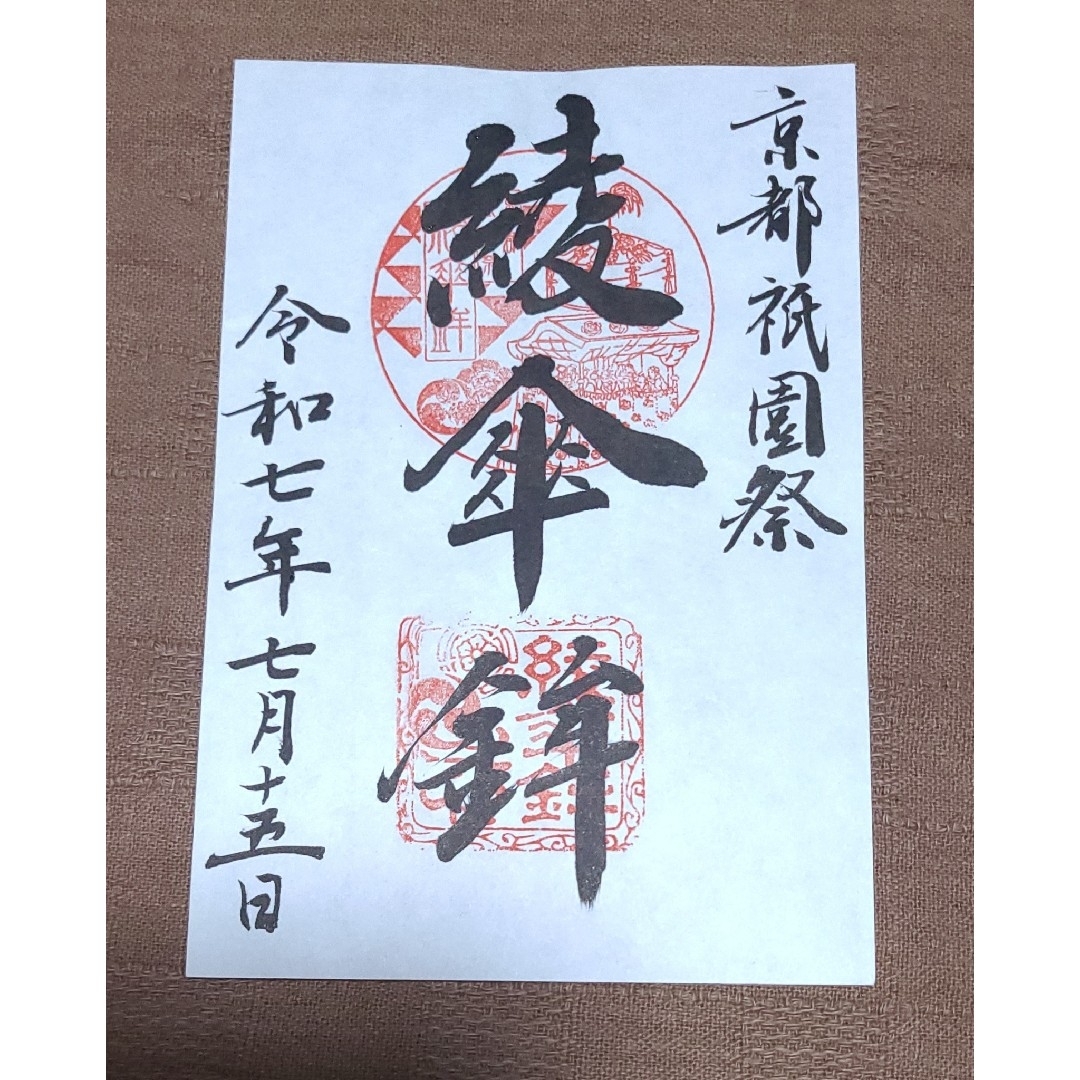 京都祇園祭
綾傘鉾
令和七年七月十五日
綾傘鉾